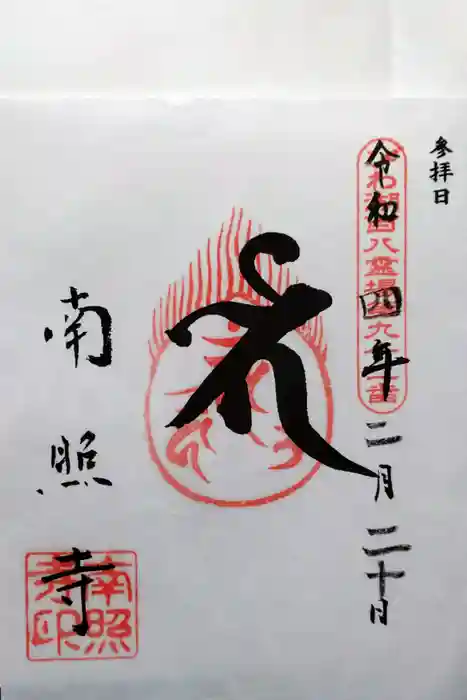 参拝日
令和四年二月二十日
南照寺
南照寺印